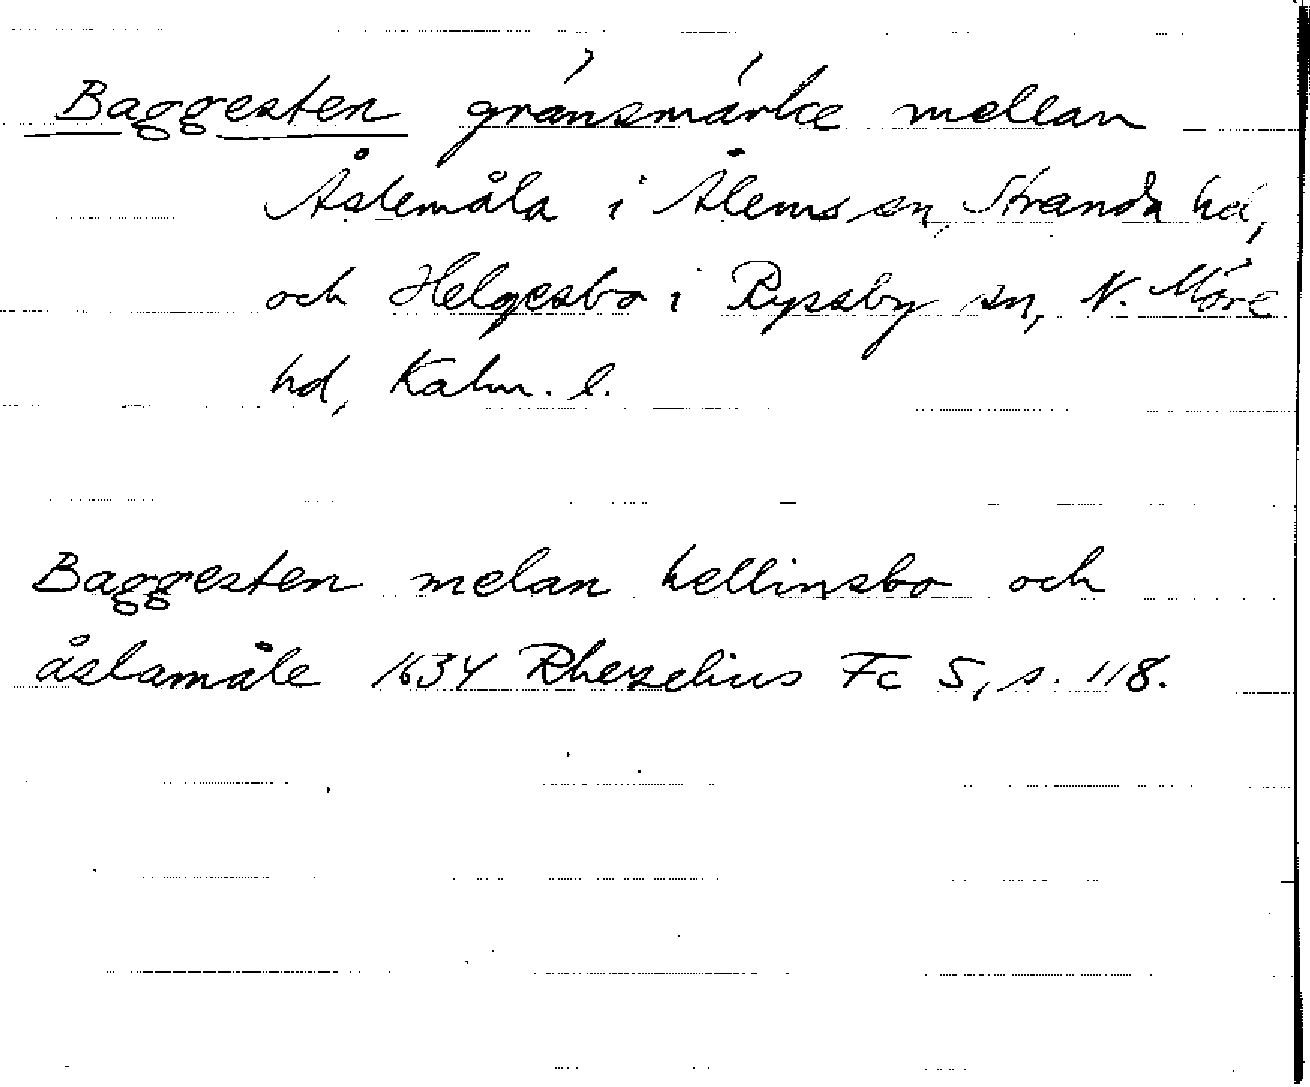 Baggesten gränsmärke mellan
Åstemåla i Ålems sn, Stranda hd,
och Helgesbo i Ryssby sn, N. Möre
hd, Kalm. l.
Baggesten melan hellinsbo och
åslamåle 1634 Rhezelius Fc 5, s. 118.